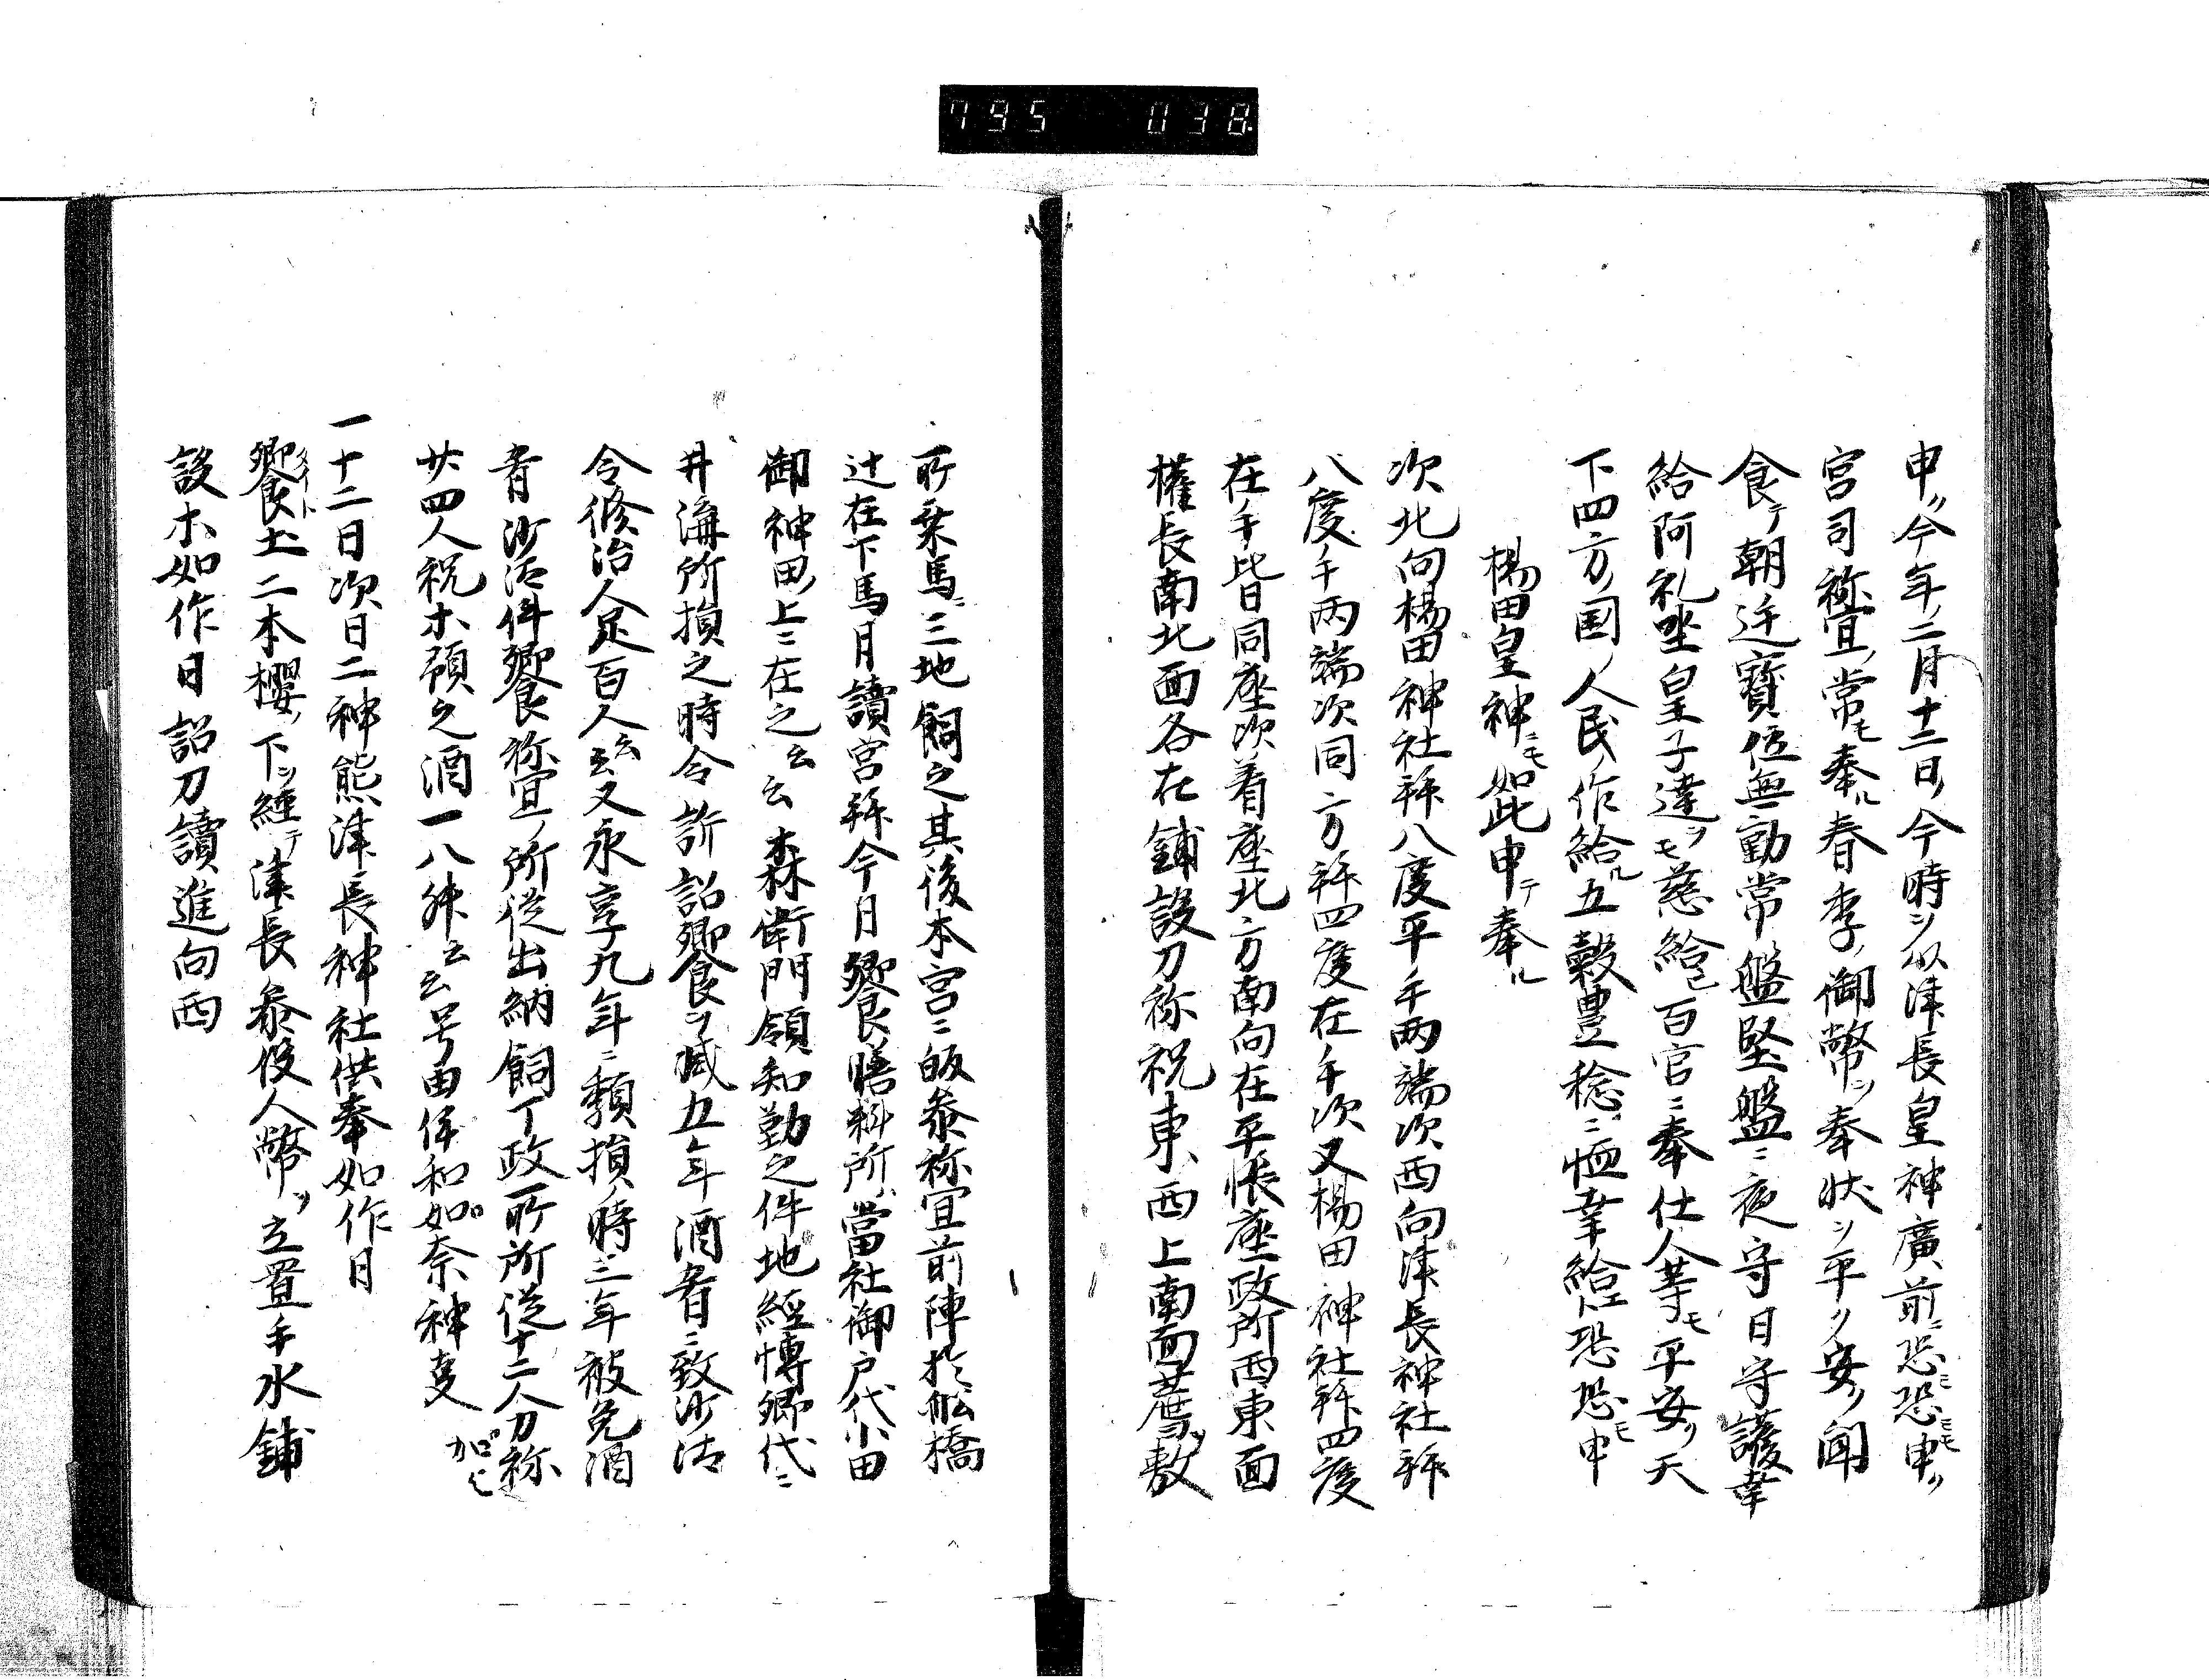 795 038
申ク今年ノ二月十二日ノ今時ヲ以津長皇神廣前ニ恐ミ恐ミモ申ク
宮司祢宜ノ常モ奉ル春季ノ御幣ヲ奉状ヲ平ク安ク聞
食テ朝廷寳位無動常盤堅盤ニ夜守日守護幸
給阿礼坐皇子達ヲモ慈給ヒ百官ニ奉仕人等モ平安ク天
下四方ノ国ノ人民ノ作給ル五穀豊稔ニ恤幸給ヒ恐恐モ申
楊田皇神ニモ如此申テ奉ル
次北向楊田神社拜八度平手両端次西向津長神社拜
八度手両端次同方拜四度在手次又楊田神社拜四度
在手皆同座次着座北方南向在平帳座政所西東面
權長南北面各在鋪設刀祢祝東西上南面薦ヲ敷
所乗馬ニ三地飼之其後本宮ニ皈参祢宜前陣於舩橋
辻在下馬月讀宮拜今月饗膳料所當社御戸代小田
御神田ノ上ニ在之云云森衛門領知勤之件地經博郷代ニ
井溝所損之時令訴詔饗ヲ減五年酒肴ニ致沙汰
令修治人足百人云云又永享九年ニ頽損ノ時三年被免酒
肴沙汰件饗祢宜ノ所従出納飼丁政所所従十二人刀祢
廿四人祝木頭之酒一八舛云云号由伴和如奈神㕝
加ヒ
一十二日次日二神態津長神社供奉如作日
饗土二本櫻ノ下ヲ經テ津長参役人幣ヲ立置手水鋪
設木如作日詔刀讀進向西